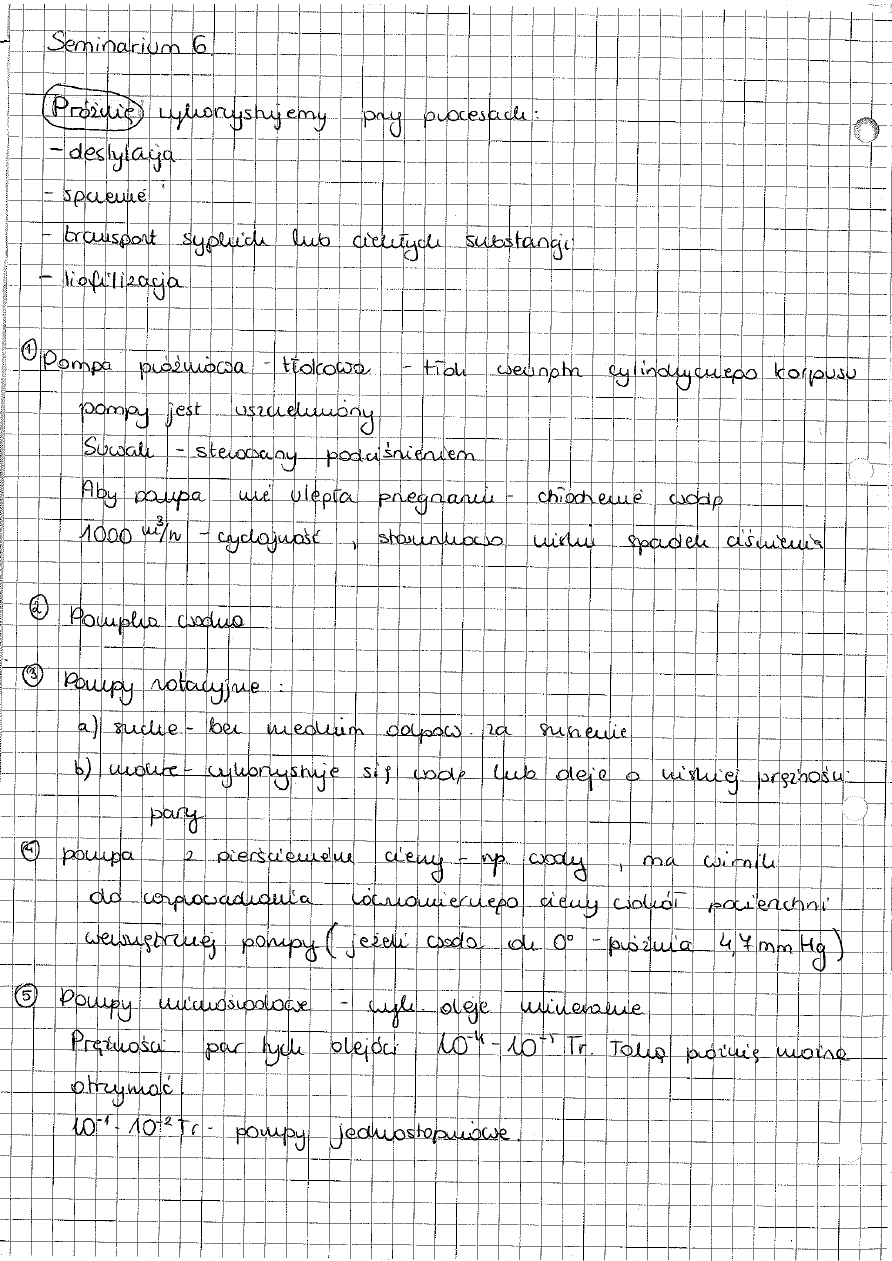 Seminarium 6
Próżnię wykorzystujemy przy procesach:
- destylacja
- suszenie
- transport sypkich lub ciekłych substancji
- liofilizacja
① Pompa próżniowa - tłokowa - tłok wewnątrz cylindrycznego korpusu
pompy jest uszczelniony
Suwak - sterowany podciśnieniem
Aby pompa nie uległa przegrzaniu - chłodzenie wodą
1000 m³/h - wydajność, stosunkowo niski spadek ciśnienia
② Pompka wodna
③ Pompy rotacyjne:
a) suche - bez medium odpow. za smarowanie
b) mokre - wykorzystuje się wodę lub oleje o niskiej prężności
pary
④ pompa z pierścieniem cieczy - np. wody, ma wirnik
do rozprowadzania równomiernego cieczy wokół powierzchni
wewnętrznej pompy (jeżeli woda ok 0° - próżnia 4,7 mm Hg)
⑤ Pompy mimośrodowe - wyk. oleje mineralne
Prężności par tych olejów 10⁻⁴ - 10⁻⁵ Tr. Taką próżnię można
otrzymać.
10⁻¹ - 10⁻² Tr - pompy jednostopniowe.